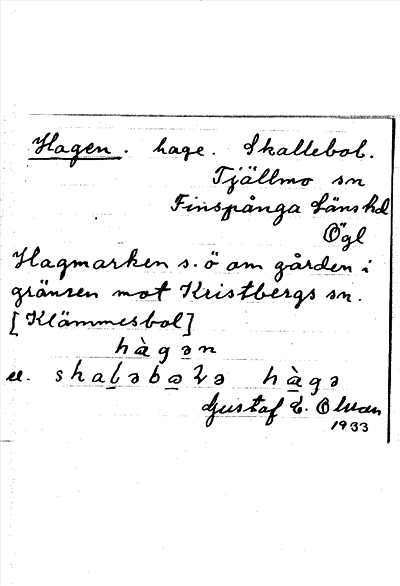 Hagen. hage. Skallebol.
Tjällmo sn
Finspånga länshd
Ögl
Hagmarken s.ö om gården i
gränsen mot Kristbergs sn.
[Klämmesbol]
hàgən
el. hàgə
Gustaf E.
1933